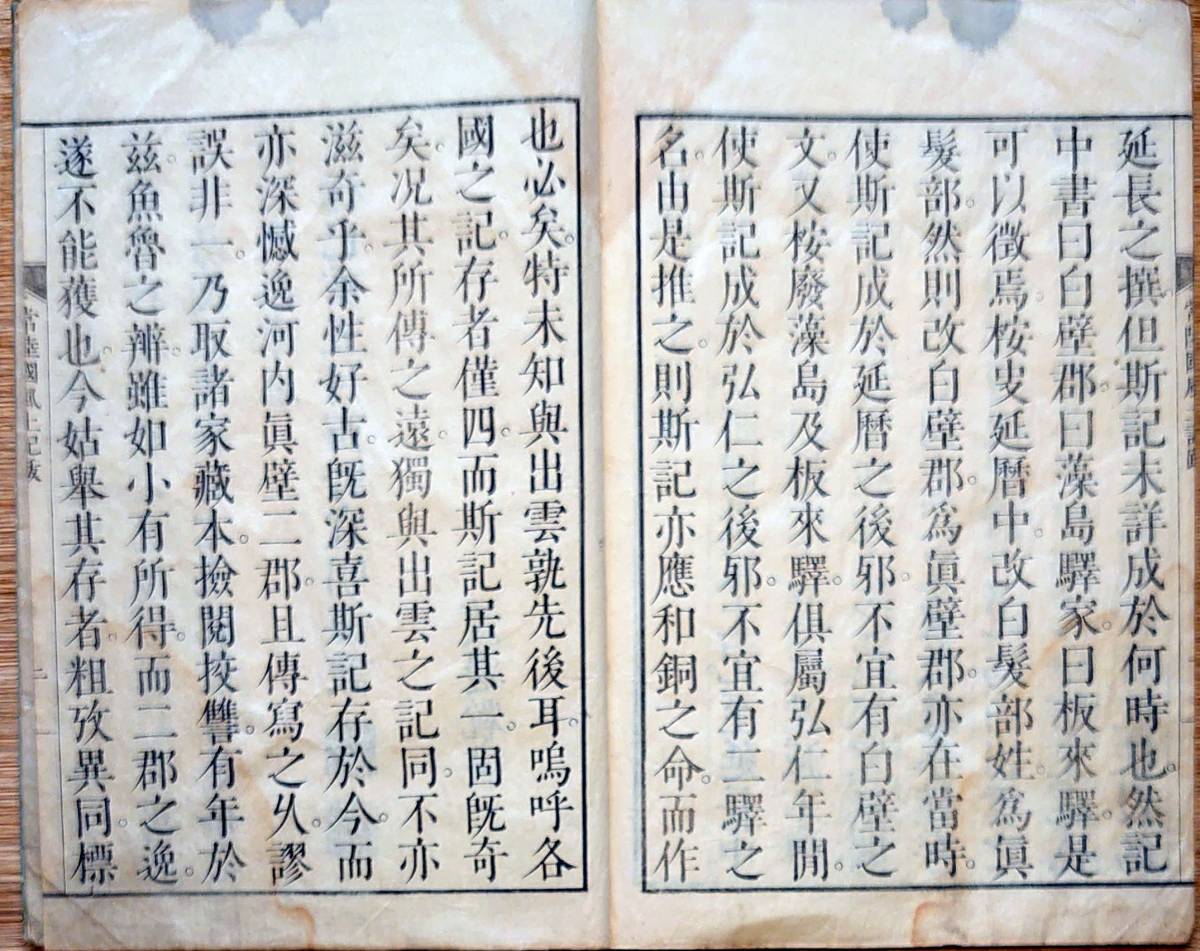 延長之撰但斯記未詳成於何時也。然記
中書曰白壁郡。曰藻島驛家。曰板來驛。是
可以徵焉。桉史延曆中。改白髮部姓。爲眞
髮部。然則改白壁郡。爲眞壁郡。亦在當時。
使斯記成於延曆之後邪。不宜有白壁之
文。又桉廢藻島及板來驛。俱屬弘仁年間。
使斯記成於弘仁之後邪。不宜有二驛之
名。由是推之。則斯記亦應和銅之命。而作
也必矣。特未知與出雲孰先後耳。嗚呼各
國之記。存者僅四。而斯記居其一。固旣奇
矣。况其所傳之遠。獨與出雲之記同。不亦
滋奇乎。余性好古。旣深喜斯記存於今。而
亦深憾逸河内眞壁二郡。且傳寫之久。謬
誤非一。乃取諸家藏本。撿閱挍讐。有年於
茲。魚魯之辨。雖如小有所得。而二郡之逸。
遂不能獲也。今姑舉其存者。粗攷異同。標
常陸國風土記跋
二